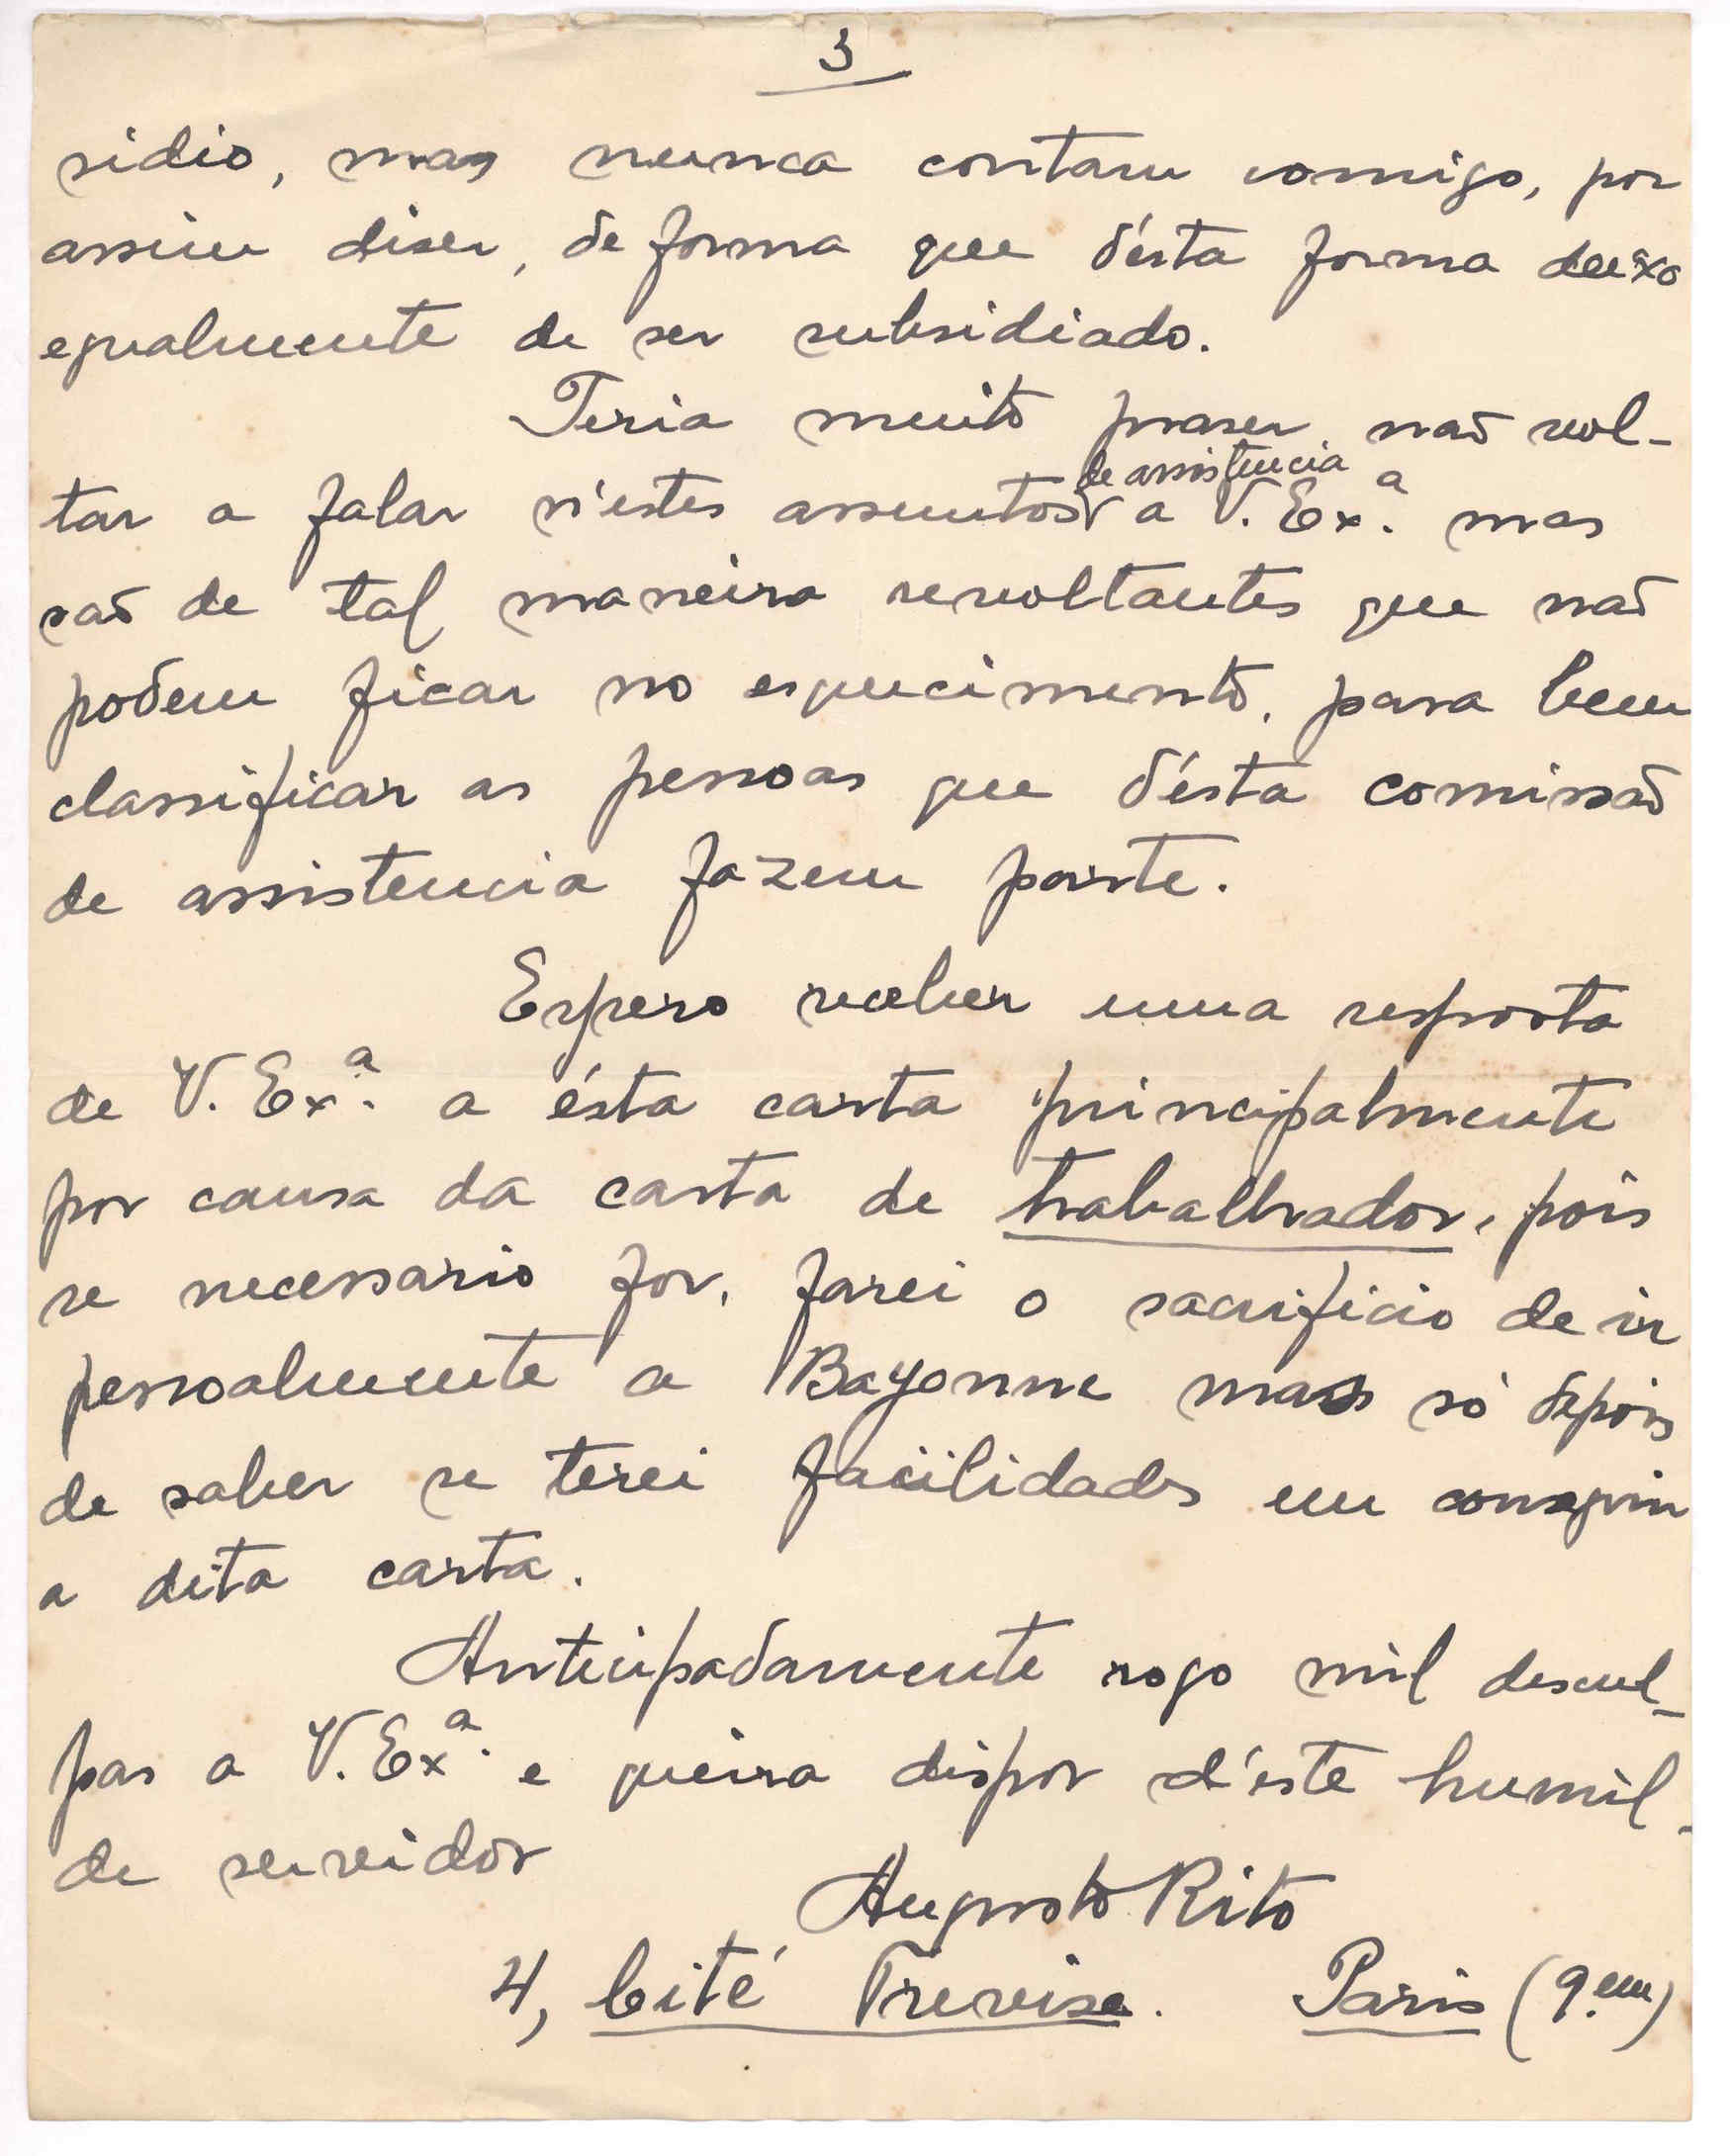 3
sidio, mas nunca contam comigo, por
assim diser, de forma que d'ésta forma deixo
egualmente de ser subsidiado.
Teria muito praser não vol-
tar a falar n'estes assuntos de assistencia a V. Ex.ª mas
são de tal maneira revoltantes que não
podem ficar no esquecimento, para bem
classificar as pessoas que d'ésta comissão
de assistencia fazem parte.
Espero receber uma resposta
de V. Ex.ª a ésta carta principalmente
por causa da carta de trabalhador, pois
se necessario for, farei o sacrificio de ir
pessoalmente a Bayonne mas só depois
de saber se terei facilidades em conseguir
a dita carta.
Antecipadamente rogo mil descul-
pas a V. Exª. e queira dispor d'este humil-
de servidor
Augusto Rito
4, Cité Trevise. Paris (9.em)